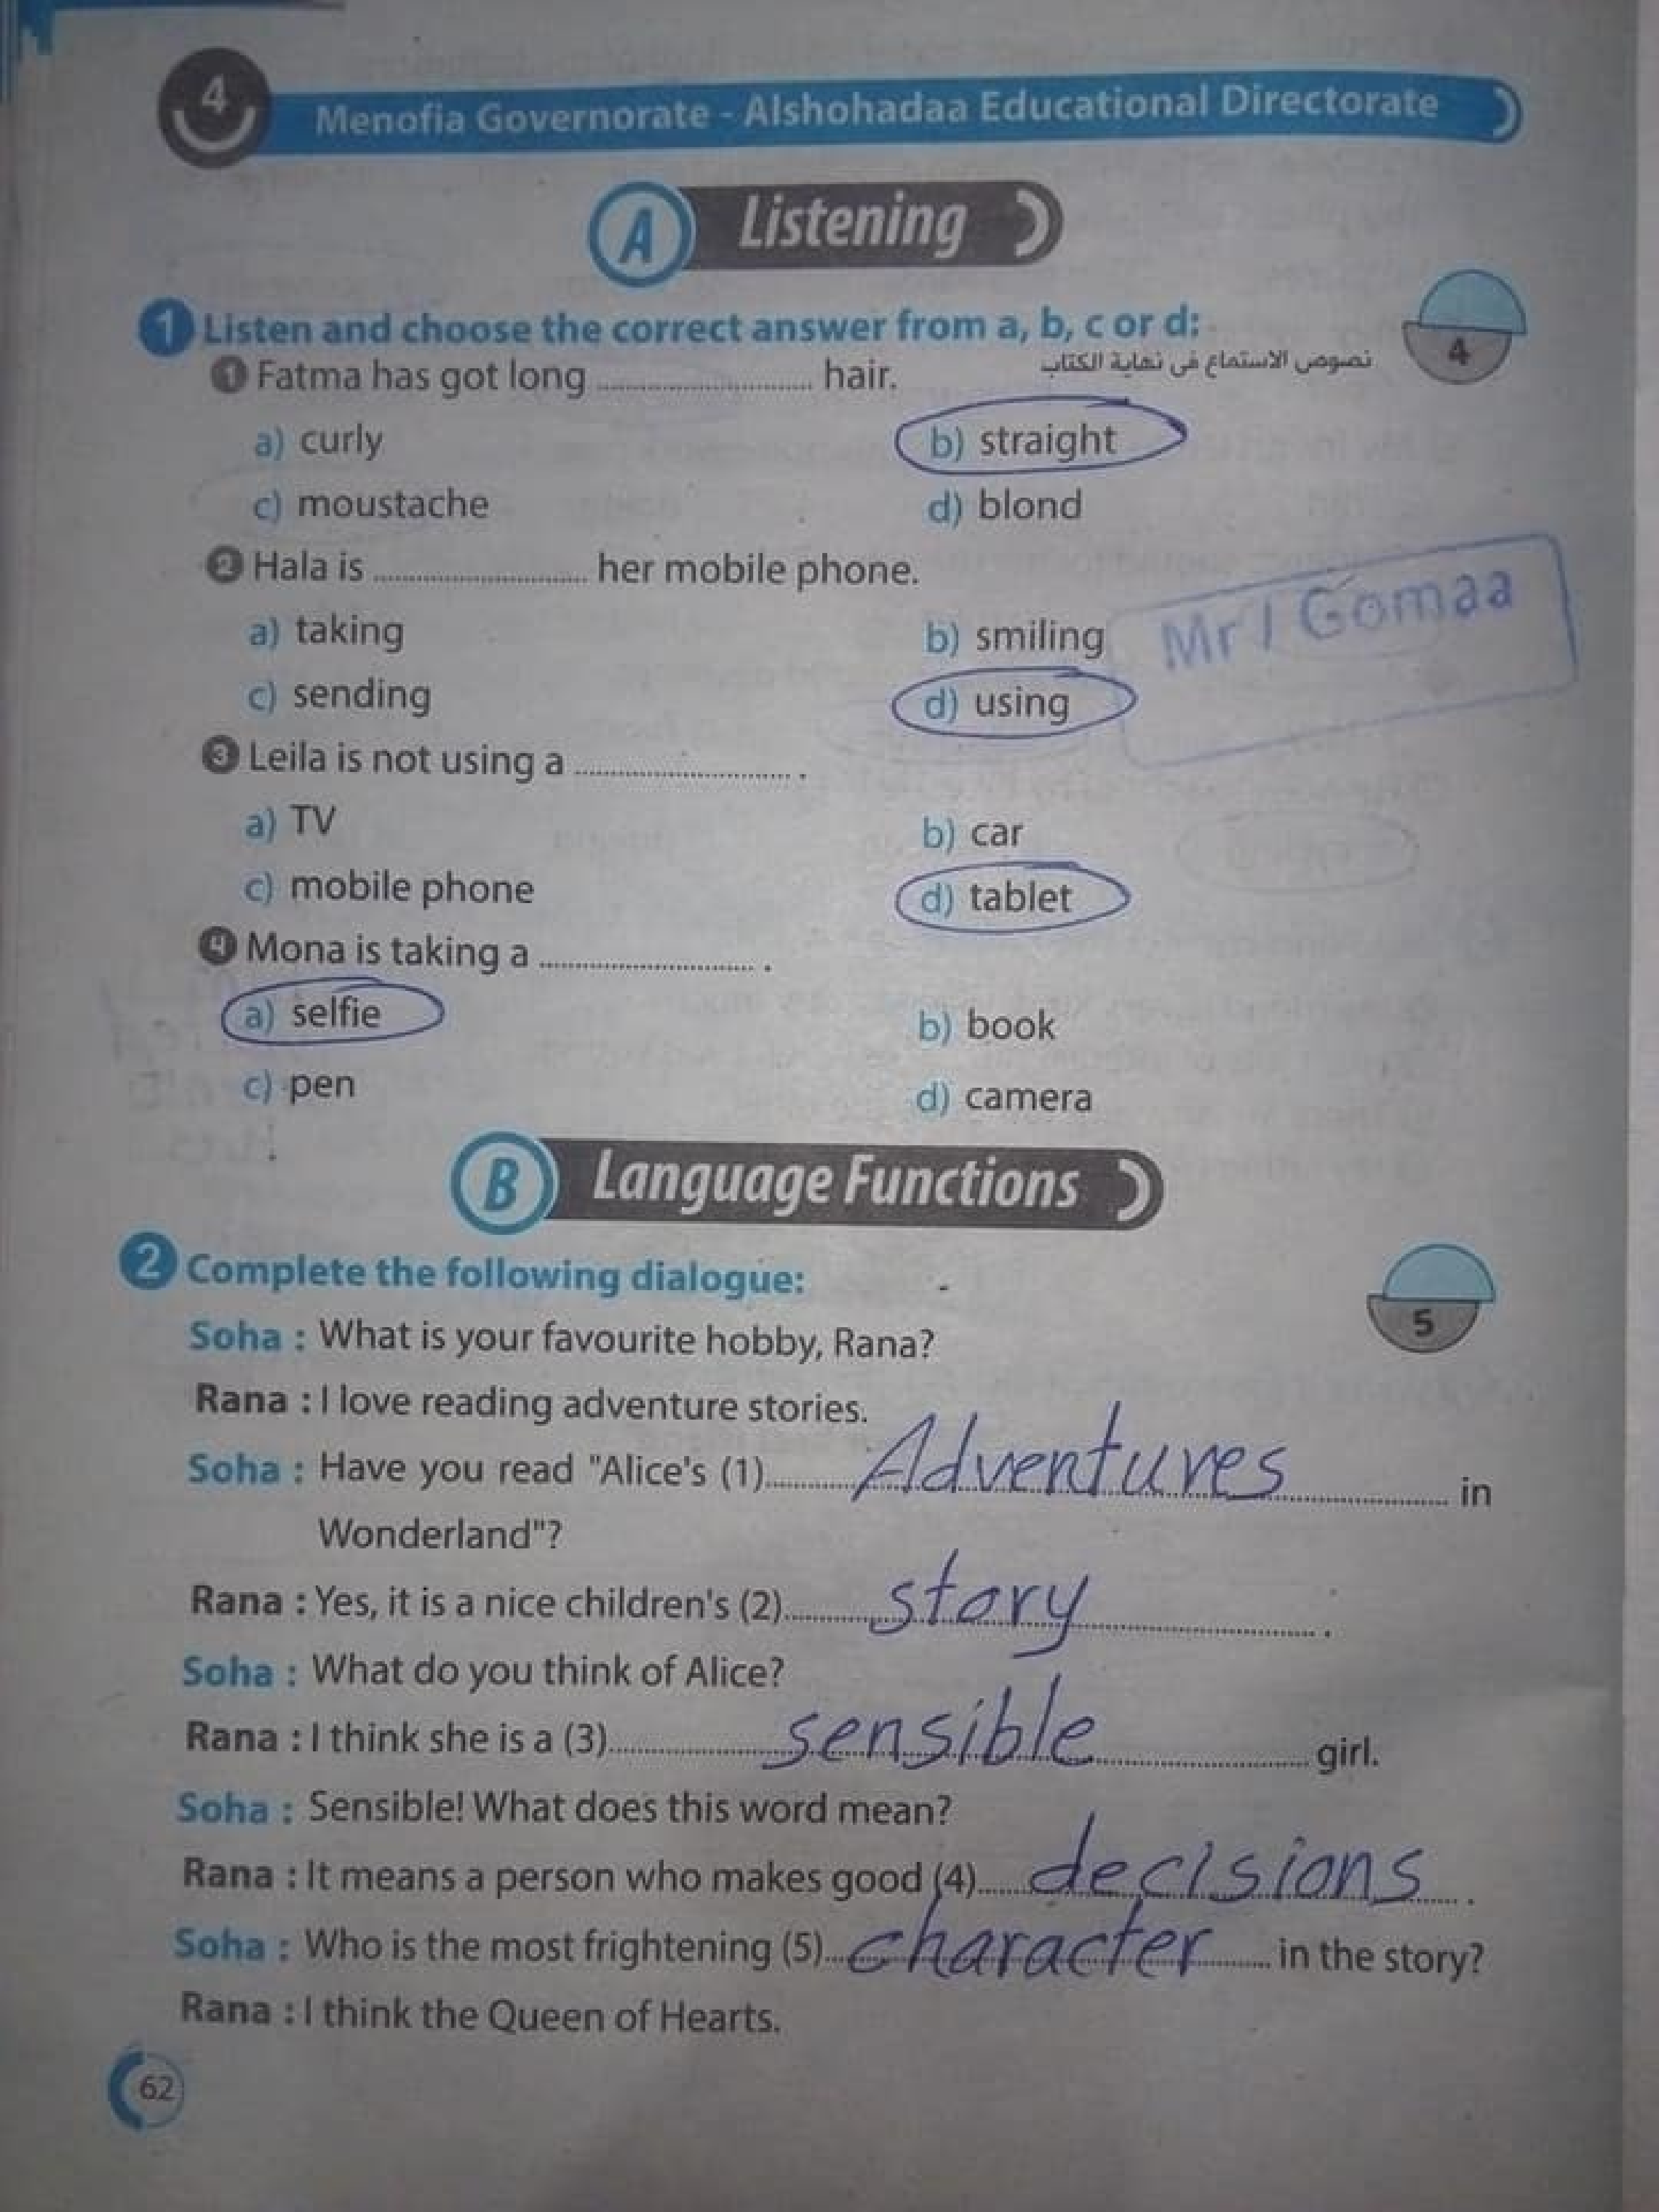 4
Menofia Governorate - Alshohadaa Educational Directorate
A Listening
1 Listen and choose the correct answer from a, b, c or d:
4
نصوص الاستماع فى نهاية الكتاب
1 Fatma has got long ........................ hair.
a) curly b) straight
c) moustache d) blond
2 Hala is ........................ her mobile phone.
a) taking b) smiling
c) sending d) using
Mr / Gomaa
3 Leila is not using a ........................ .
a) TV b) car
c) mobile phone d) tablet
4 Mona is taking a ........................ .
a) selfie b) book
c) pen d) camera
B Language Functions
2 Complete the following dialogue:
5
Soha : What is your favourite hobby, Rana?
Rana : I love reading adventure stories.
Soha : Have you read "Alice's (1) Adventures in
Wonderland"?
Rana : Yes, it is a nice children's (2) story .
Soha : What do you think of Alice?
Rana : I think she is a (3) sensible girl.
Soha : Sensible! What does this word mean?
Rana : It means a person who makes good (4) decisions .
Soha : Who is the most frightening (5) character in the story?
Rana : I think the Queen of Hearts.
62